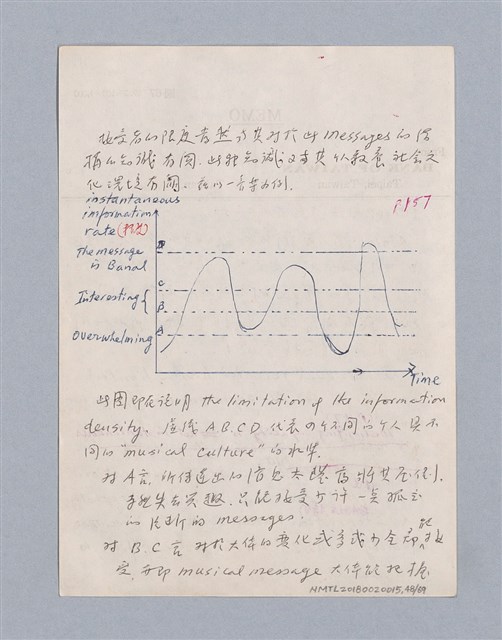 接受者的限度當然與其對於此 messages 的結
構的知識有關. 此種知識又與其人教養社會文
化環境有關. 茲以一音樂為例.
P157
instantaneous
information
rate
The message
is Banal
D
C
Interesting {
B
overwhelming
A
Time
此圖即在說明 the limitation of the information
density. 虛線 A.B.C.D. 代表四個不同的個人具不
同的 "musical culture" 的水準.
對 A 言, 所傳達出的信息太高將其壓倒.
失去興趣. 只能接受少許一點孤立
的片斷的 messages.
對 B C 言 對於大体的變化或多或少全部能接
受, 亦即 musical message 大体能把握
NMTL20180020015, 48/69
MEMO